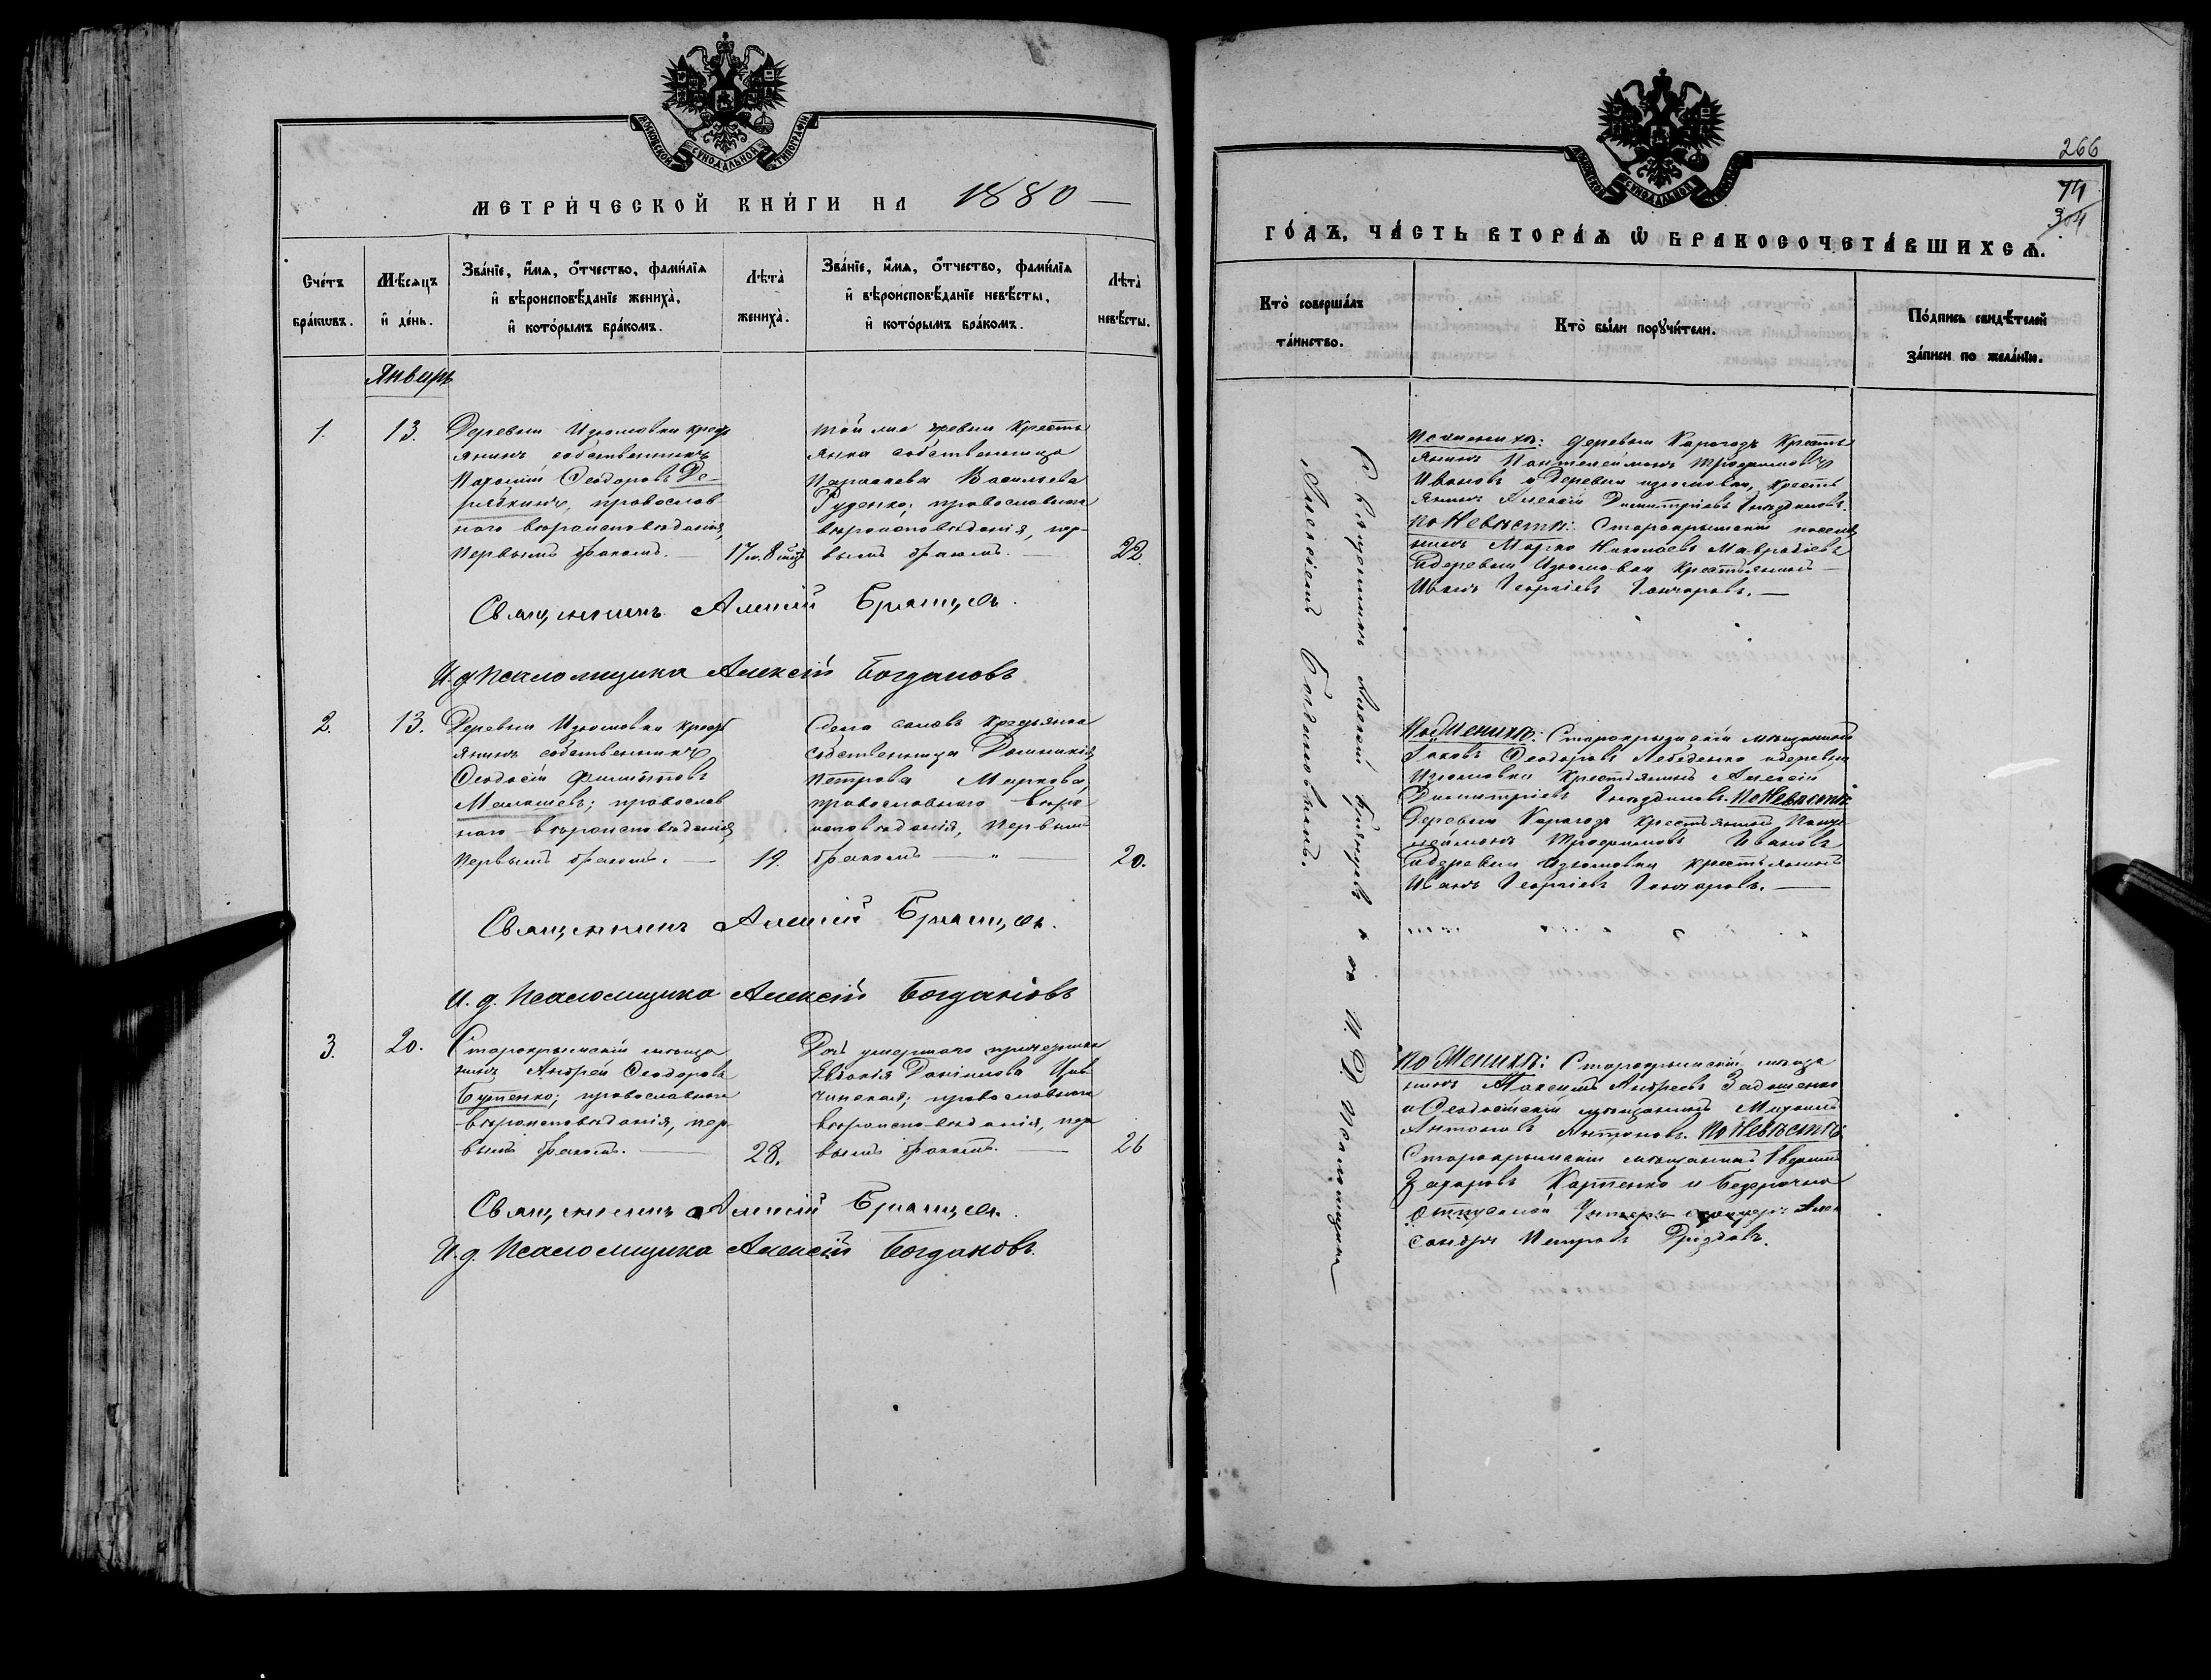 МОСКОВСКОЙ СѴНОДАЛЬНОЙ ТИПОГРАФІИ
МЕТРИ́ЧЕСКОЙ КНИ́ГИ НА 1880
Сче́тъ бра́кѡвъ.
Мѣ́сяцъ и҆ де́нь.
Зва́нїе, и҆́мѧ, ѻ҆́тчество, фами́лїѧ
и҆ вѣроисповѣ́данїе жениха̀,
и҆ кото́рымъ бра́комъ.
Лѣта̀ жениха̀.
Зва́нїе, и҆́мѧ, ѻ҆́тчество, фами́лїѧ
и҆ вѣроисповѣ́данїе невѣ́сты,
и҆ кото́рымъ бра́комъ.
Лѣта̀ невѣ́сты.
Январь
1.
13.
Деревни Изюмовки крест
янинъ собственникъ
Пахомій Ѳеодоровъ Де-
православ
наго вѣроисповѣданія,
первымъ бракомъ.
17 л. 8 мѣс.
той же деревни кресть
янка собственница
Параскева Васильева
Руденко, православнаго
вѣроисповѣданія, пер-
вымъ бракомъ.
22.
Священникъ Алексій Брянцевъ.
И. д. Псаломщика Алексій Богдановъ
2.
13.
Деревни Изюмовки крест
янинъ собственникъ
Ѳеодосій Филипповъ
Малашевъ; православ
наго вѣроисповѣданія,
первымъ бракомъ.
19.
Села Саловъ крестьянка
собственница Домникія
Петрова Маркова,
православнаго вѣро
исповѣданія, первымъ
бракомъ
20.
Священникъ Алексій Брянцевъ.
И. д. Псаломщика Алексій Богдановъ
3.
20.
Старокрымскій мѣща
нинъ Андрей Ѳеодоровъ
Бутенко; православнаго
вѣроисповѣданія, пер
вымъ бракомъ.
28.
Дочь умершаго
Евдокія Даніилова
православнаго
вѣроисповѣданія, пер
вымъ бракомъ.
26
Священникъ Алексій Брянцевъ.
И. д. Псаломщика Алексій Богдановъ.
МОСКОВСКОЙ СѴНОДАЛЬНОЙ ТИПОГРАФІИ
266
304
ГО́ДЪ, ЧА́СТЬ ВТОРА́Ѧ Ѡ҆ БРАКОСОЧЕТА́ВШИХСѦ.
Кто̀ соверша́лъ
та́инство.
Кто̀ бы́ли порꙋчи́тели.
По́дпись свидѣ́телей
за́писи по жела́нїю.
Священникъ Алексій Брянцевъ съ И. Д. Псаломщика
Алексіемъ Богдановымъ.
По женихѣ: деревни Карагозъ кресть
янинъ Пантелеймонъ Трофимовъ
Ивановъ и деревни Изюмовки, кресть
янинъ Алексій Димитріевъ Гнѣздиловъ.
По Невѣстѣ: Старокрымскій поселя
нинъ Марко Николаевъ
и деревни Изюмовки крестьянинъ
Иванъ Георгіевъ Гончаровъ.
По Женихѣ: Старокрымскій мѣщанинъ
Іаковъ Ѳеодоровъ Лебеденко и деревни
Изюмовки крестьянинъ Алексій
Димитріевъ Гнѣздиловъ. По Невѣстѣ:
Деревни Карагозъ крестьянинъ Панте
леймонъ Трофимовъ Ивановъ
и деревни Изюмовки крестьянинъ
Иванъ Георгіевъ Гончаровъ.
По Женихѣ: Старокрымскій мѣща
нинъ Максимъ Андреевъ
и Ѳеодосійскій мѣщанинъ Михаилъ
Антоновъ Антоновъ. По Невѣстѣ
Старокрымскій мѣщанинъ
Захаровъ Карпенко и Безсрочно
отпускной Унтеръ офицеръ Алек
сандръ Петровъ